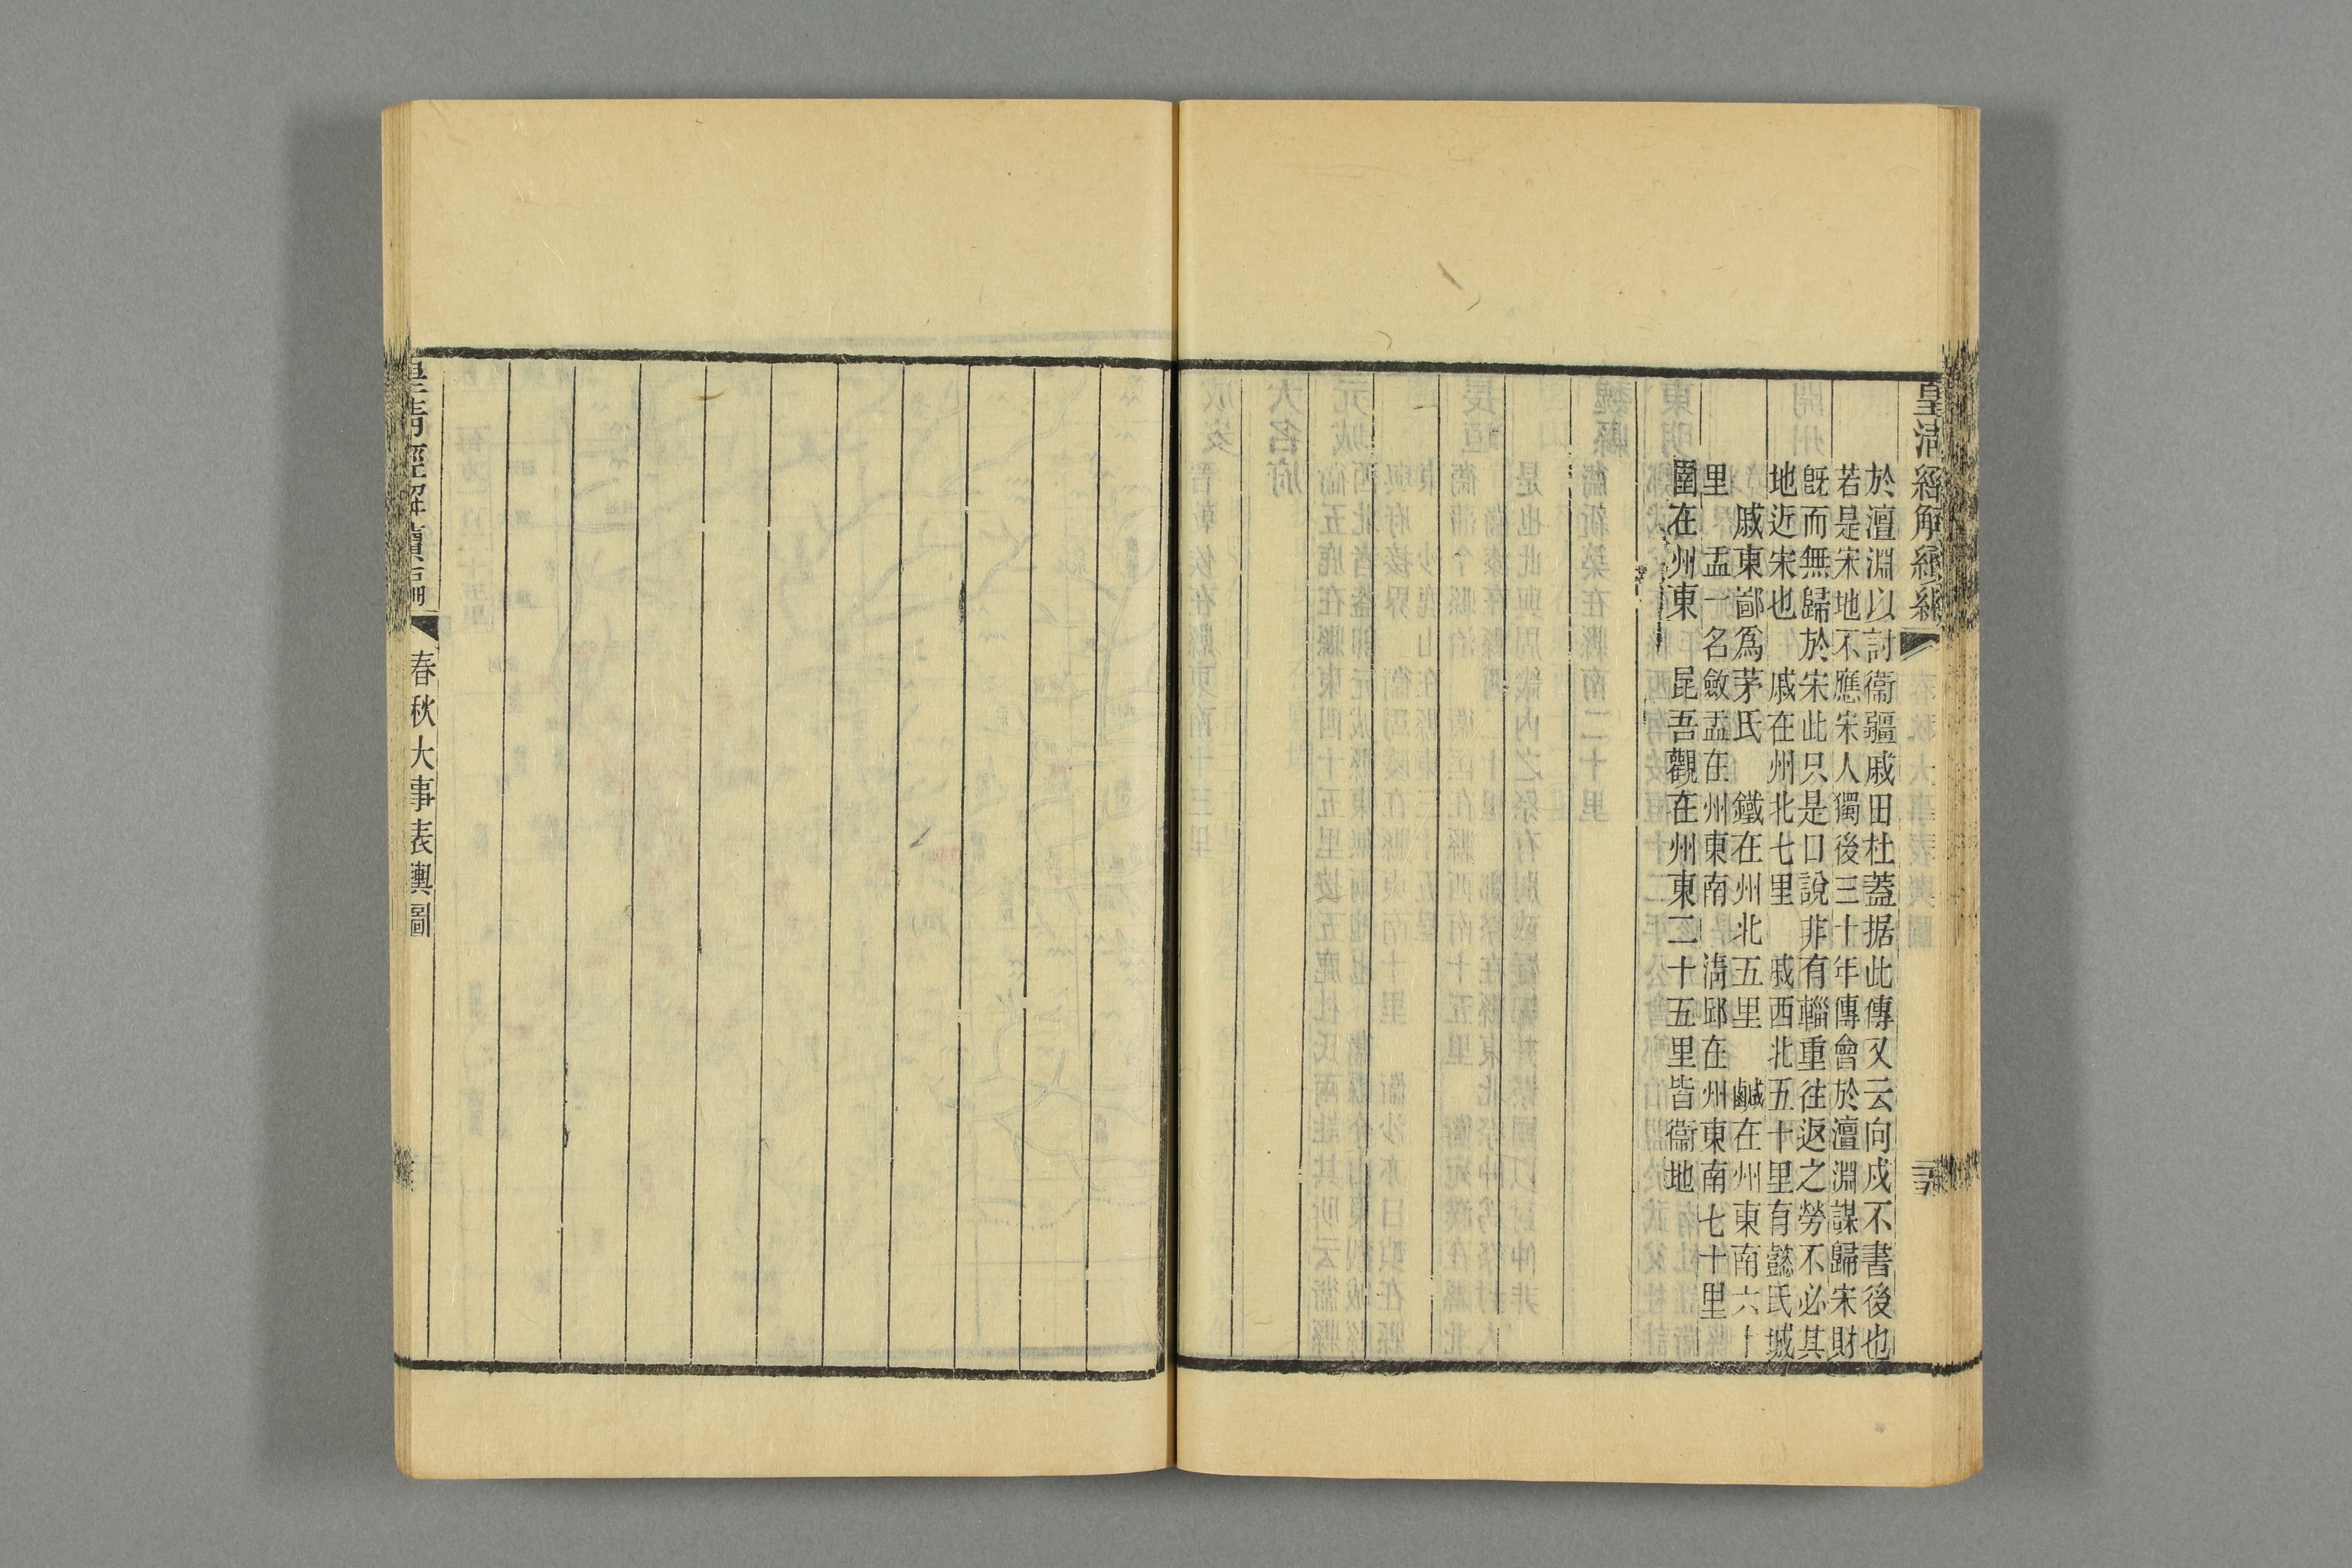 皇清經解續編
於澶淵以討衞疆戚田杜蓋据此傳又云向戍不書後也
若是宋地不應宋人獨後三十年傳會於澶淵謀歸宋財
旣而無歸於宋此只是口說非有輜重往返之勞不必其
地近宋也　戚在州北七里　戚西北五十里有懿氏城
戚東鄙爲茅氏　鐵在州北五里　鹹在州東南六十
里　盂一名斂盂在州東南　淸邱在州東南七十里
圉在州東　昆吾觀在州東二十五里皆衞地
皇清經解續編
春秋大事表輿圖